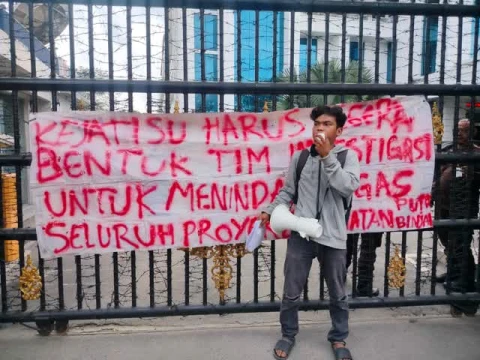 KEJATISU HARUS SEGERA
BENTUK TIM INVESTIGASI
UNTUK MENINDAK TEGAS
SELURUH PROYEK JEMBATAN PUPR BINJAI